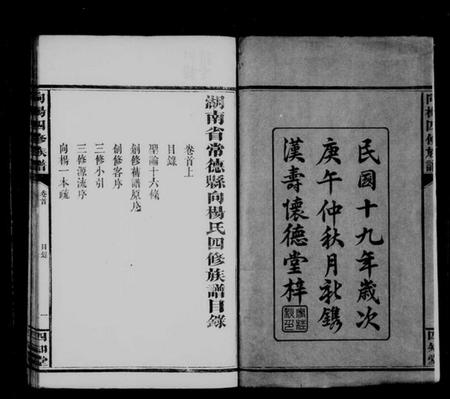 向楊四修族譜
四知堂
民國十九年歲次
庚午仲秋月新鐫
漢壽懷德堂梓
湖南省常德縣向楊氏四修族譜目錄
卷首上
目錄
聖諭十六條
創修舊譜原序
創修客序
三修小引
三修源流序
向楊一本疏
向楊四修族譜
卷首
目錄
一
四知堂